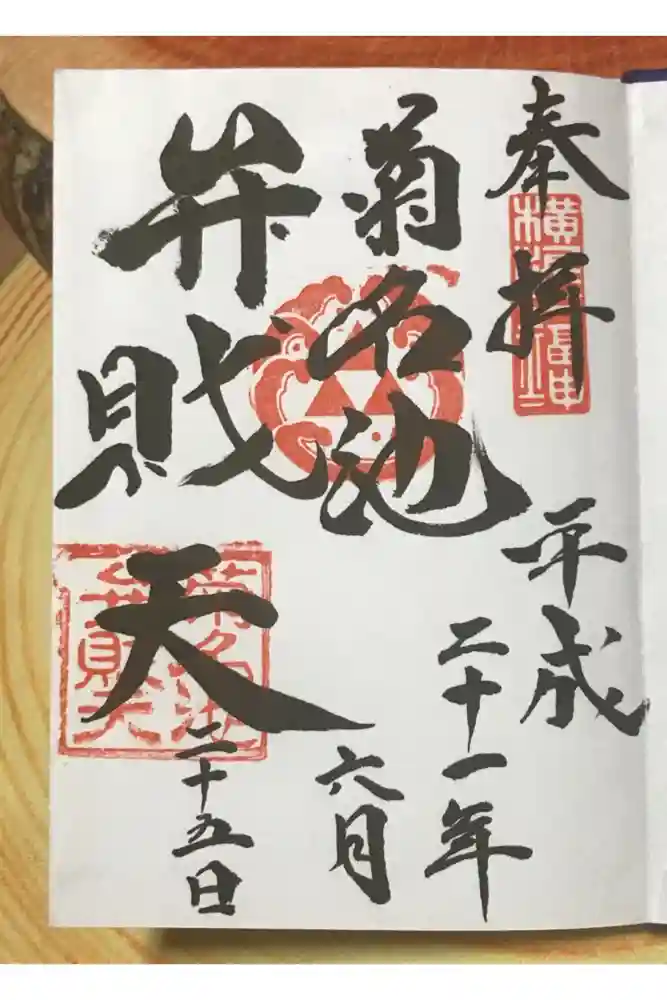 奉拝
平成
二十一年
六月
二十五日
菊名池
弁財天
菊名池
弁財天